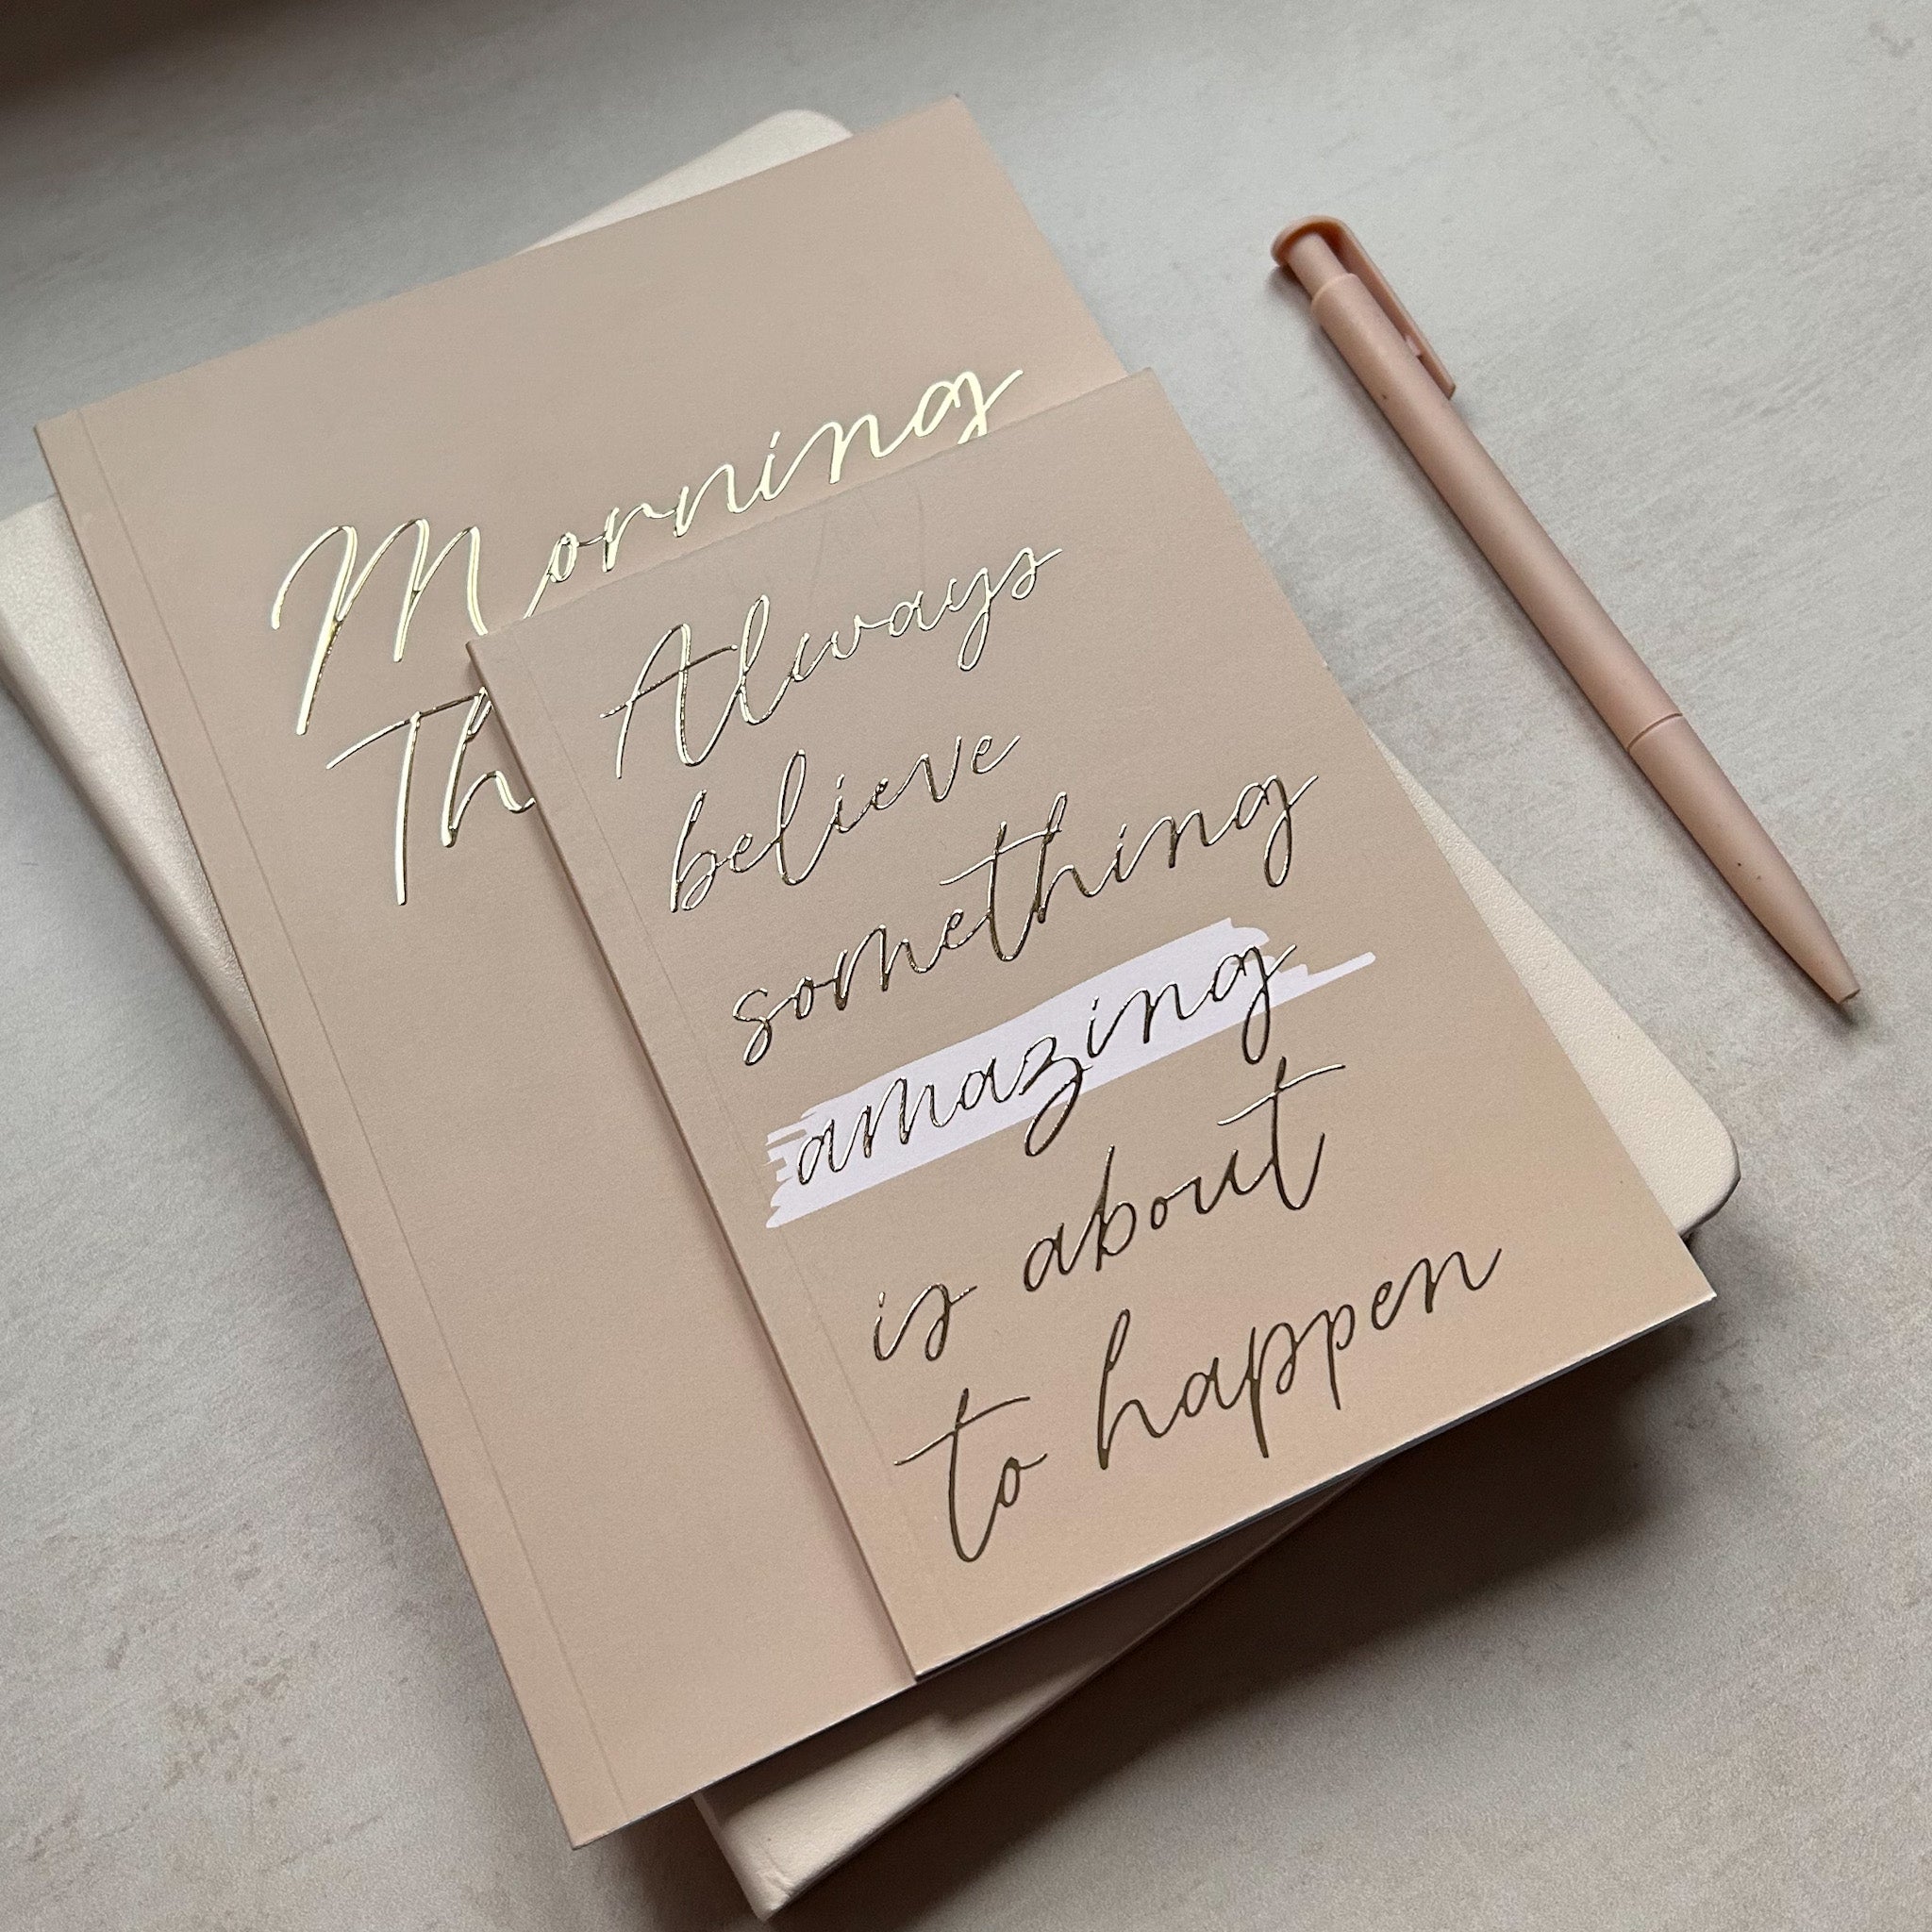 Morning
Th
Always
believe
something
amazing
is about
to happen